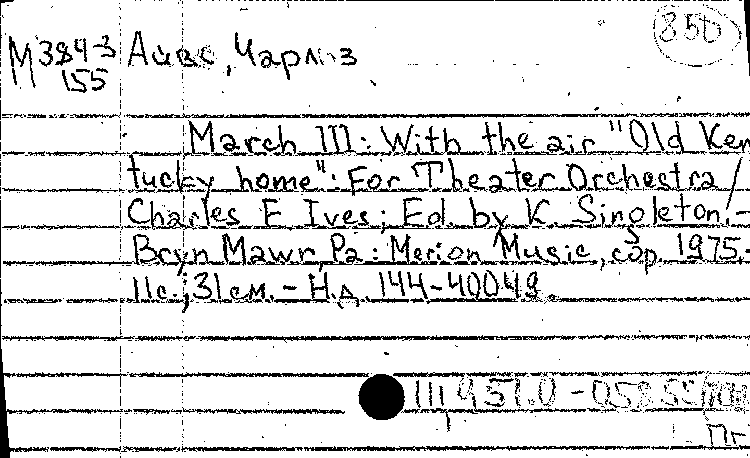 850
M 384-3 Айвс, Чарлз
155
March III: With the air "Old Ken
tucky home": For Theater Orchestra /
Charles E Ives; Ed. by K. Singleton. -
Bryn Mawr, Pa: Merion Music, cop. 1975.-
11с.; 31 см. - Н.д. 144-40049.